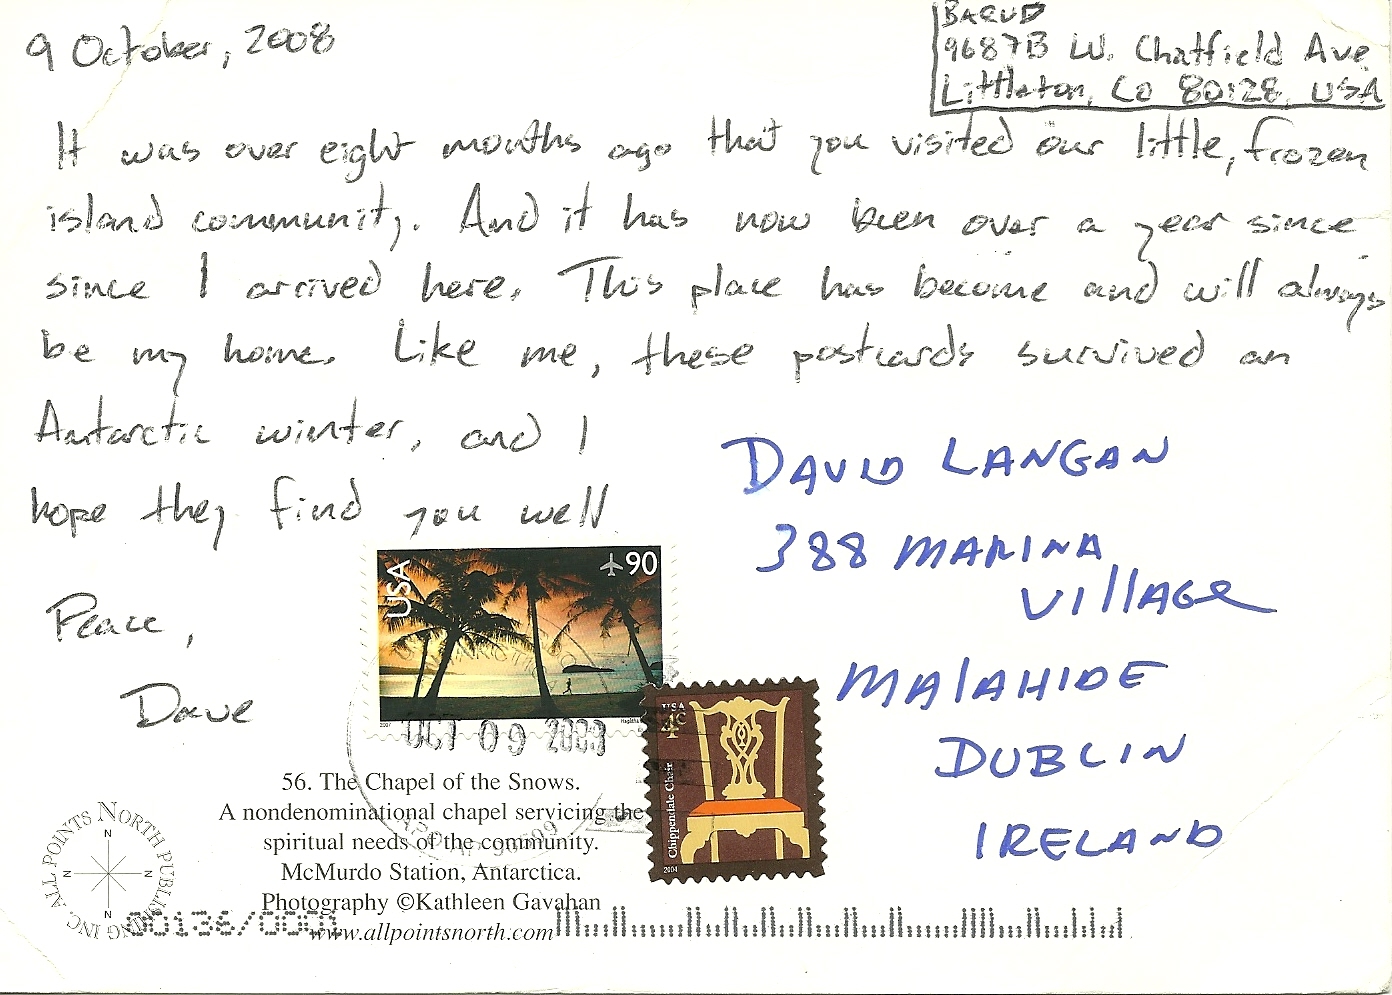 9 October, 2008
BARUD
9687B W. Chatfield Ave
Littleton, CO 80128, USA
It was over eight months ago that you visited our little, frozen
island community. And it has now been over a year since
since I arrived here. This place has become and will always
be my home. Like me, these postcards survived an
Antarctic winter, and I
hope they find you well
Peace,
Dave
DAVID LANGAN
388 MARINA
VIllAGE
MAlAHIDE
DUBLIN
IRELAND
USA
90
2007
OCT 09 2008
USA
4c
Chippendale Chair
2004
56. The Chapel of the Snows.
A nondenominational chapel servicing the
spiritual needs of the community.
McMurdo Station, Antarctica.
Photography ©Kathleen Gavahan
www.allpointsnorth.com
ALL POINTS NORTH PUBLISHING INC.
N
N
N
N
00136/0001